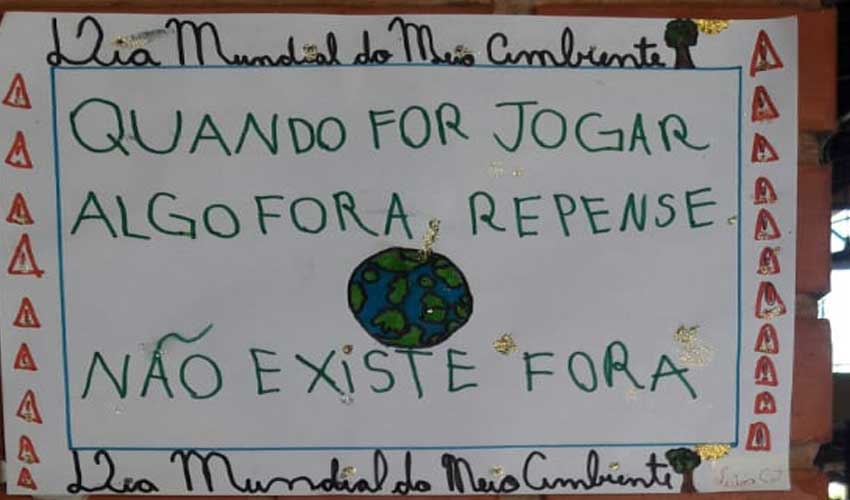 Dia Mundial do Meio Ambiente
QUANDO FOR JOGAR
ALGO FORA, REPENSE.
NÃO EXISTE FORA
Dia Mundial do Meio Ambiente